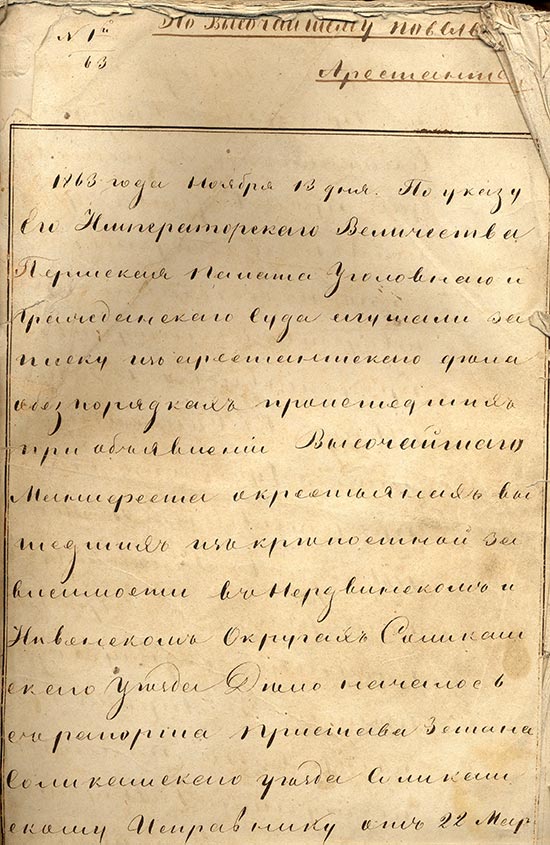 № 1й
63
По Высочайшему повелѣ
Арестантс
1863 года Ноября 13 дня. По указу
Его Императорскаго Величества
Пермская Палата Уголовнаго и
Гражданскаго Суда слушали за
писку изъ арестантскаго дѣла
обезпорядкахъ происшедшихъ
при объявленіи Высочайшаго
Манифеста окрестьянахъ вы
шедшихъ изъ крѣпостной за
висимости въ Нердвинскомъ и
Инвенскомъ Округахъ Соликам
скаго Уѣзда Дѣло началось
съ рапорта Пристава 3 стана
Соликамскаго уѣзда Соликам
скому Исправнику отъ 22 Мар